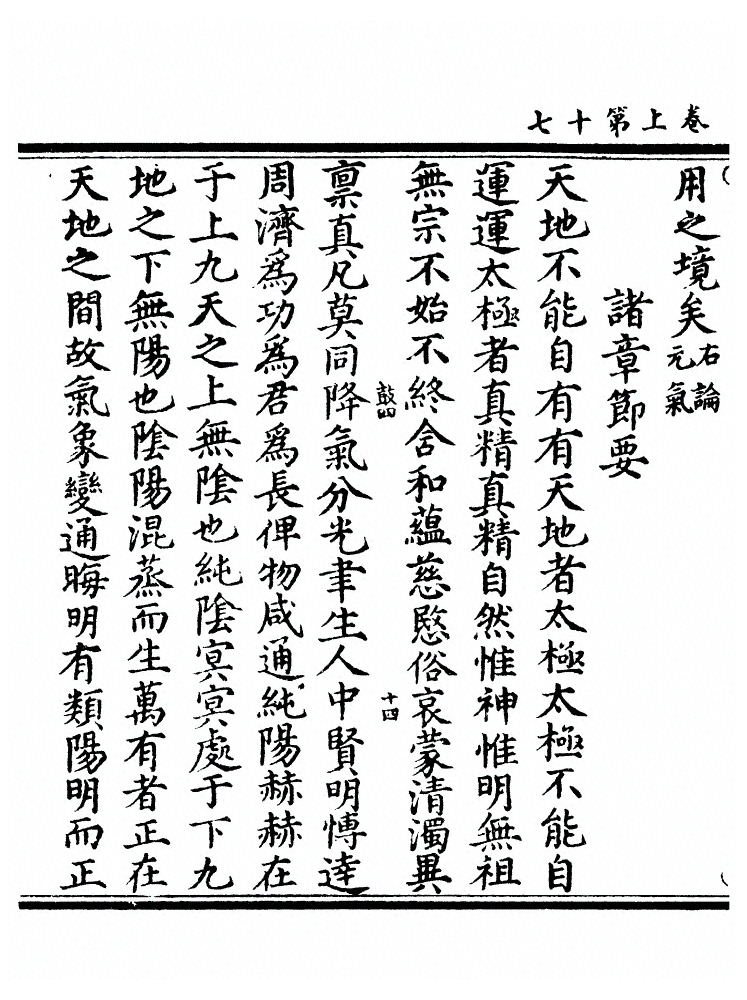 卷上第十七
用之境矣右論元氣
諸章節要
天地不能自有有天地者太極太極不能自
運運太極者真精真精自然惟神惟明無祖
無宗不始不終含和蘊慈愍俗哀蒙清濁異
鼓四
十四
禀真凡莫同降氣分光聿生人中賢明博達
周濟爲功爲君爲長俾物咸通純陽赫赫在
于上九天之上無陰也純陰冥冥處于下九
地之下無陽也陰陽混蒸而生萬有者正在
天地之間故氣象變通晦明有類陽明而正